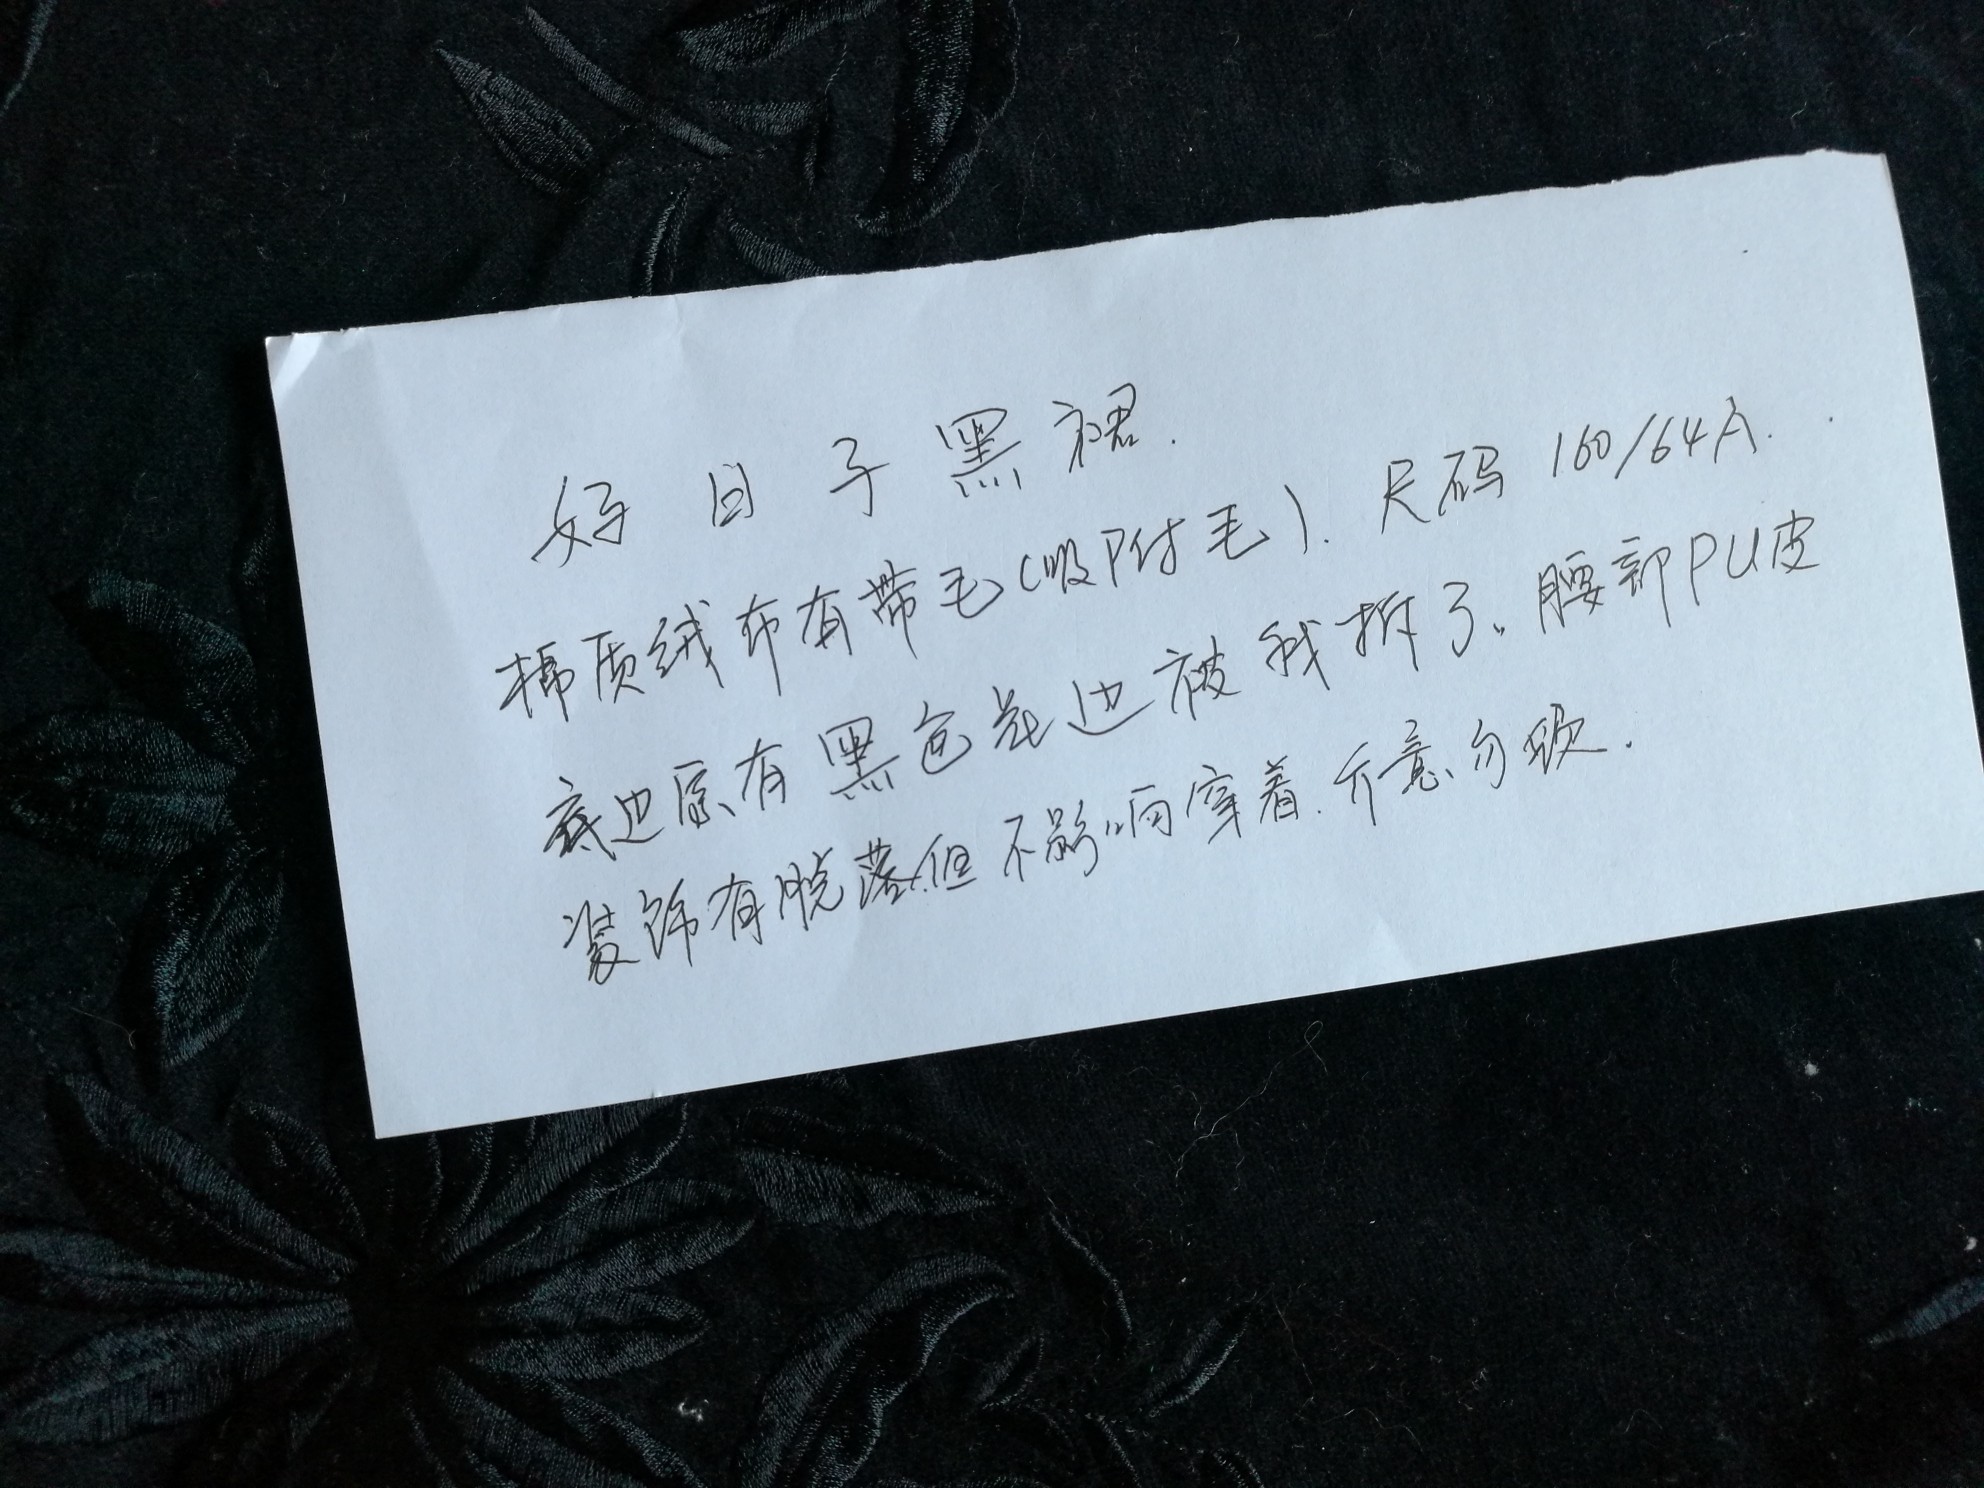 好日子黑裙.
棉质绒布有带毛(吸附毛).尺码160/64A.
底边原有黑色花边被我拆了。腰部PU皮
装饰有脱落.但不影响穿着.介意勿